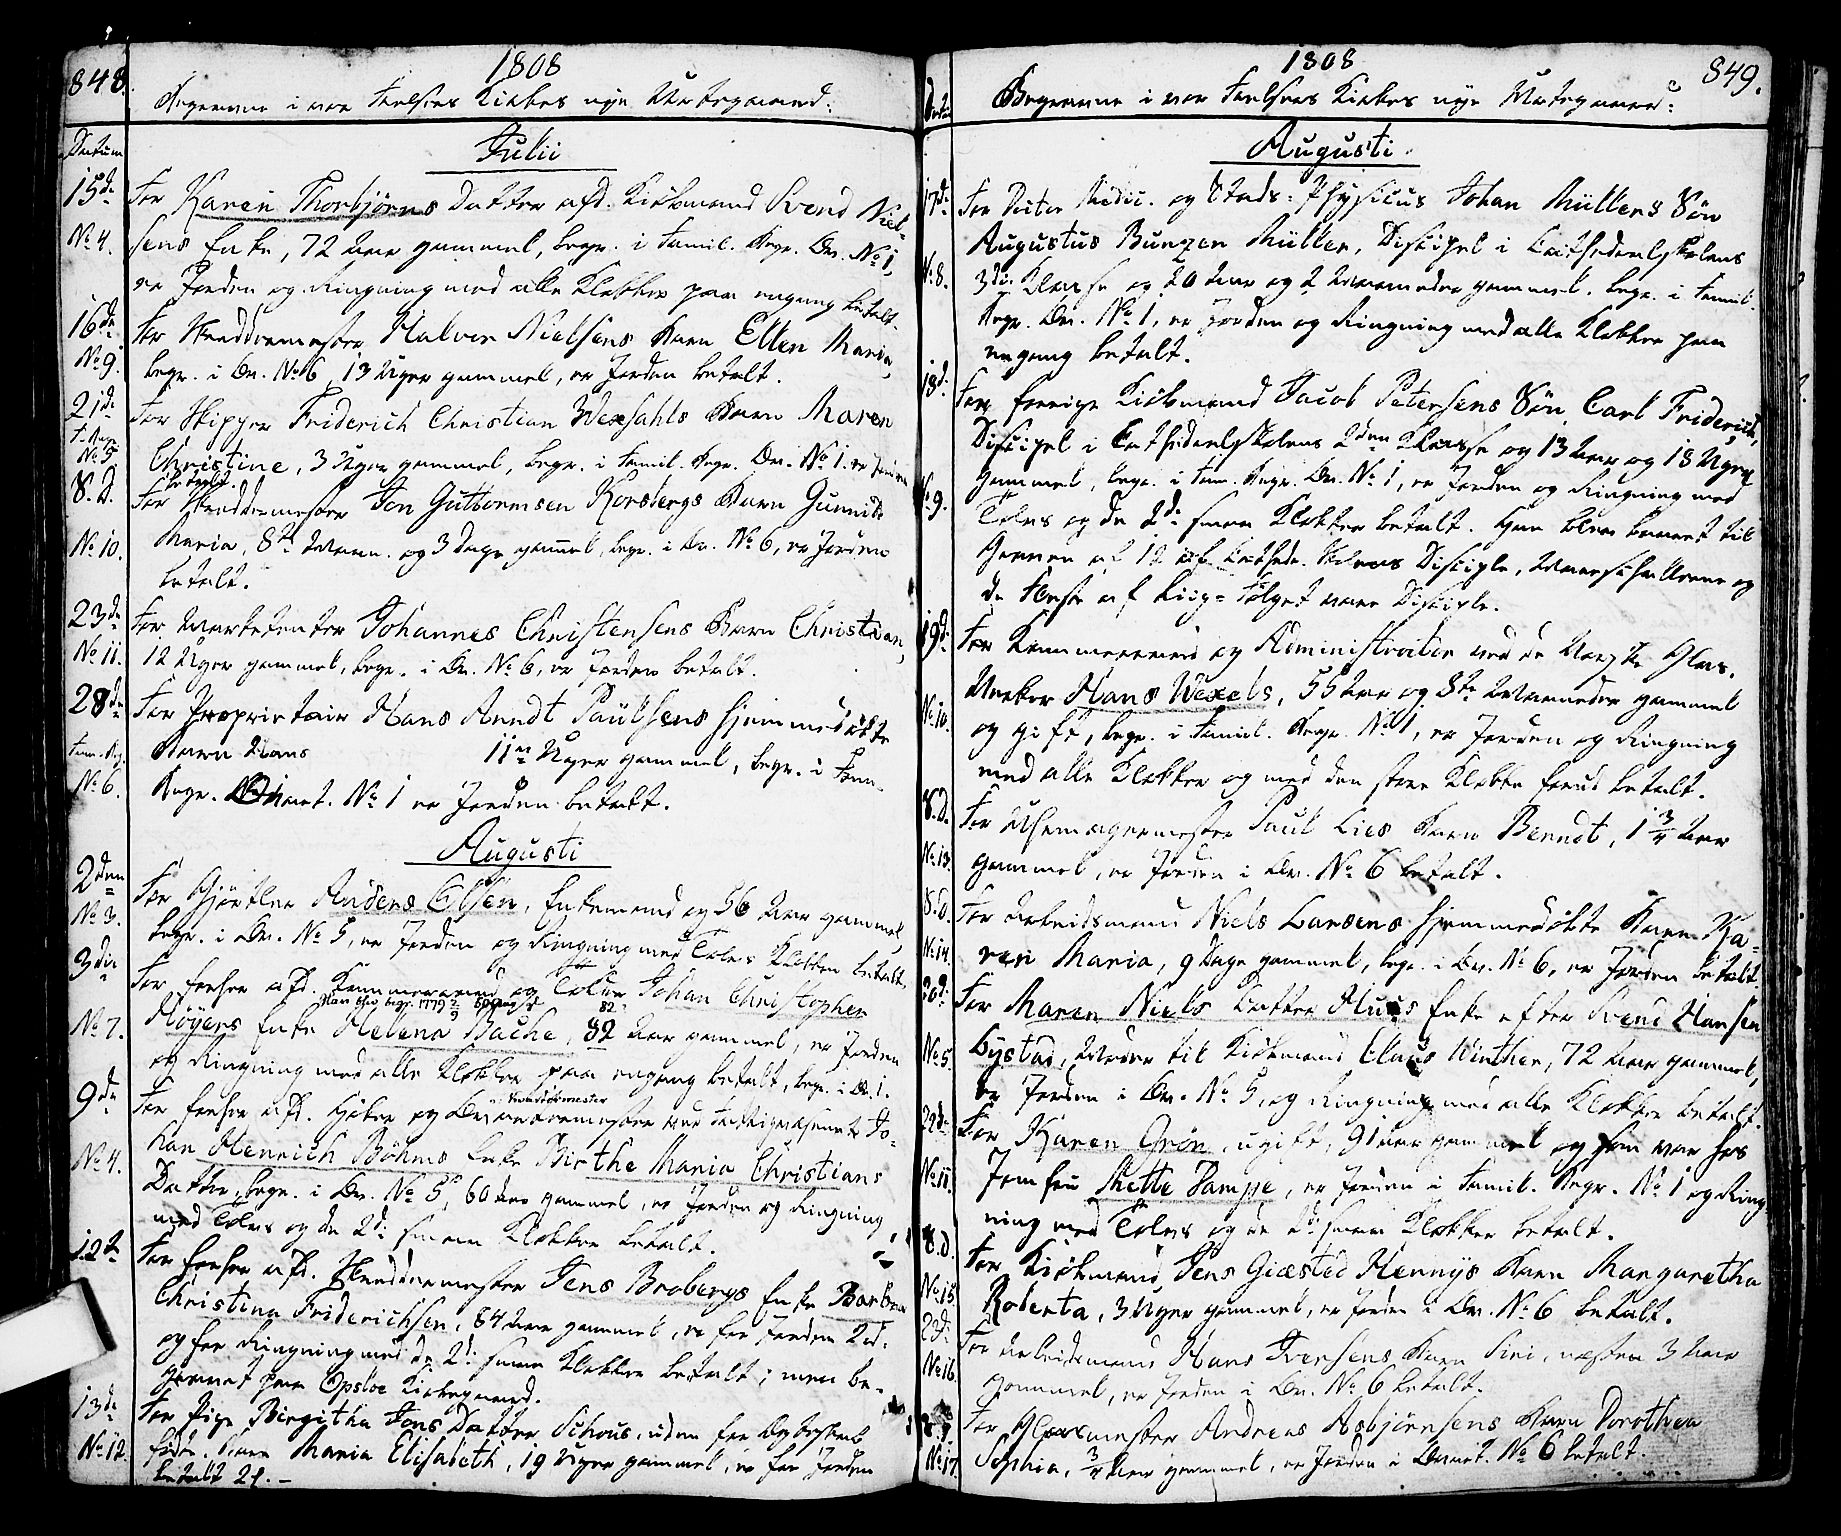 848.
1808
Begravne i vor Frelsers Kirkes nye Urtegaard:
Datum
Julii
15de
No 4.
For Karen Thorbjørns Datter afd. Kiøbmand Svend Niel-
sens Enke, 72 Aar gammel, begr. i Famil. Begr. Qv. No 1,
er Jorden og Ringning med alle Klokker paa engang betalt.
16de
No 9.
For Skreddermester Halvor Nielsens Barn Ellen Maria,
begr. i Qv. No 6, 13 Uger gammel, er Jorden betalt.
21de
F. Begr.
No 5
For Skipper Friderich Christian Wexsahls Barn Maren
Christine, 3 Uger gammel, begr. i Famil. Begr. Qv. No 1. er Jorden
betalt.
S. D.
No 10.
For Skreddermester Jon Guttormsen Korsbergs Barn Gunnild
Maria, 8te Maan. og 3 Dage gammel, begr. i Qv. No 6, er Jorden
betalt.
23de
No 11.
For Marketenter Johannes Christensens Barn Christian,
12 Uger gammel, begr. i Qv. No 6, er Jorden betalt.
28de
Fam. Beg.
No 6.
For Proprietair Hans Arndt Paulsens hjemmedøbte
Barn Hans 11ve Uger gammel, begr. i Fam.
Begr. Qvart. No 1 er Jorden betalt.
Augusti
2den
No 3.
For Gjørtler Anders Olsen, Enkemand og 56 Aar gammel,
begr. i Qv. No 5, er Jorden og Ringning med Tolvs Klokken betalt,
3die
No 7.
For forhen afd. Kammerraad og Tolder Johan Christopher
Høyers Enke Helena Bache, 82 Aar gammel, er Jorden
og Ringning med alle Klokker paa engang betalt, begr. i Qv. 1.
9de
No 4.
For forhen afd. Hjuler og
han Henrich Bøhms Enke Birthe Maria Christians
Datter, begr. i Qv. No 5, 60 Aar gammel, er Jorden og Ringning
med Tolvs og de 2de smaa Klokker betalt.
12te
For forhen afd. Skreddermester Jens Brobergs Enke Barbra
Christina Friderichsen, 84 Aar gammel, er for Jorden 2rd.
og for Ringning med de 2de smaa Klokker betalt; men be-
gravet paa Opsloe Kirkegaard.
13de
No 12.
For Pige Birgitha Jons Datter Schous, uden for Ægteskab
fødte Barn Maria Elisabeth, 19 Uger gammel, er for Jorden
betalt 24. –
1808
849.
Datum
Begravne i vor Frelsers Kirkes nye Urtegaard:
Augusti
17de
No 8.
For Doctor Medic. og Stads-Physicus Johan Müllers Søn
Augustus Bunzen Müller, Discipel i Cathedralskolens
3die Klasse og 20 Aar og 2 Maaneder gammel, begr. i Famil.
Begr. Qv. No 1, er Jorden og Ringning med alle Klokker paa
engang betalt.
18de
No 9.
For forrige Kiøbmand Jacob Petersens Søn Carl Friderich,
Discipel i Cathedralskolens 2den Klasse og 13 Aar og 18 Uger
gammel, begr. i Fam. Begr. Qv. No 1, er Jorden og Ringning med
Tolvs og de 2de smaa Klokker betalt. Han blev baaret til
Graven af 12 af Cathedr. Skolens Disciple, Marschallerne og
de fleste af Liig-Følget vare Disciple.
19de
No 10.
For Kammerraad og Administrator ved de Norske Glas-
Værker Hans Wexels, 55 Aar og 8te Maaneder gammel
og gift, begr. i Famil. Begr. No 1, er Jorden og Ringning
med alle Klokker og med den store Klokke forud betalt.
S. D.
No 13.
For Uhrmagermester Paul Lies Barn Berndt, 1 3/4 Aar
gammel, er Jorden i Qv. No 6 betalt.
S. D.
No 14.
For Arbeidsmand Niels Larsens hjemmedøbte Barn Ka-
ren Maria, 9 Dage gammel, begr. i Qv. No 6, er Jorden betalt.
20de
No 5
For Maren Niels Datter Huus Enke efter Svend Hansen
Lystad, Moder til Kiøbmand Claus Winther, 72 Aar gammel,
er Jorden i Qv. No 5, og Ringning med alle Klokker betalt.
22de
No 11.
For Karen Grøn, ugift, 91 Aar gammel og som var hos
Jomfru Mette Hampe, er Jorden i Famil. Begr. No 1 og Ring-
ning med Tolvs og de 2de smaa Klokker betalt.
S. d.
No 15.
For Kiøbmand Jens Giæsted Hennys Barn Margaretha
Roberta, 3 Uger gammel, er Jorden i Qv. No 6 betalt.
23de
No 16.
For Arbeidsmand Hans Iversens Barn Siri, næsten 3 Aar
gammel, er Jorden i Qv. No 6 betalt.
No 17.
For Glarmester Andreas Asbjørnsens Barn Dorothea
Sophia, 3/4 Aar gammel, er Jorden i Qvart. No 6 betalt.